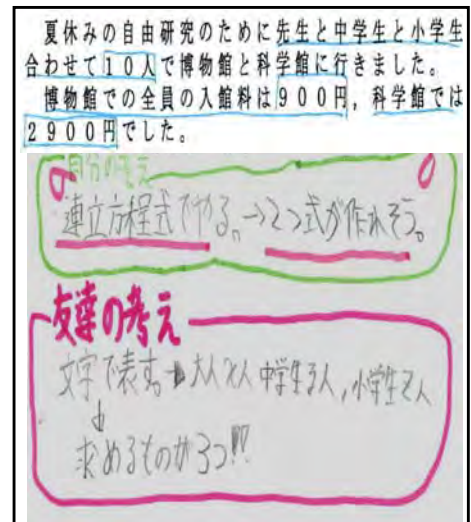 夏休みの自由研究のために先生と中学生と小学生
合わせて10人で博物館と科学館に行きました。
博物館での全員の入館料は900円，科学館では
2900円でした。
自分の考え
連立方程式でやる。→2つ式が作れそう。
友達の考え
文字で表す。→大人x人 中学生y人，小学生z人
↓
求めるものが3つ!!!